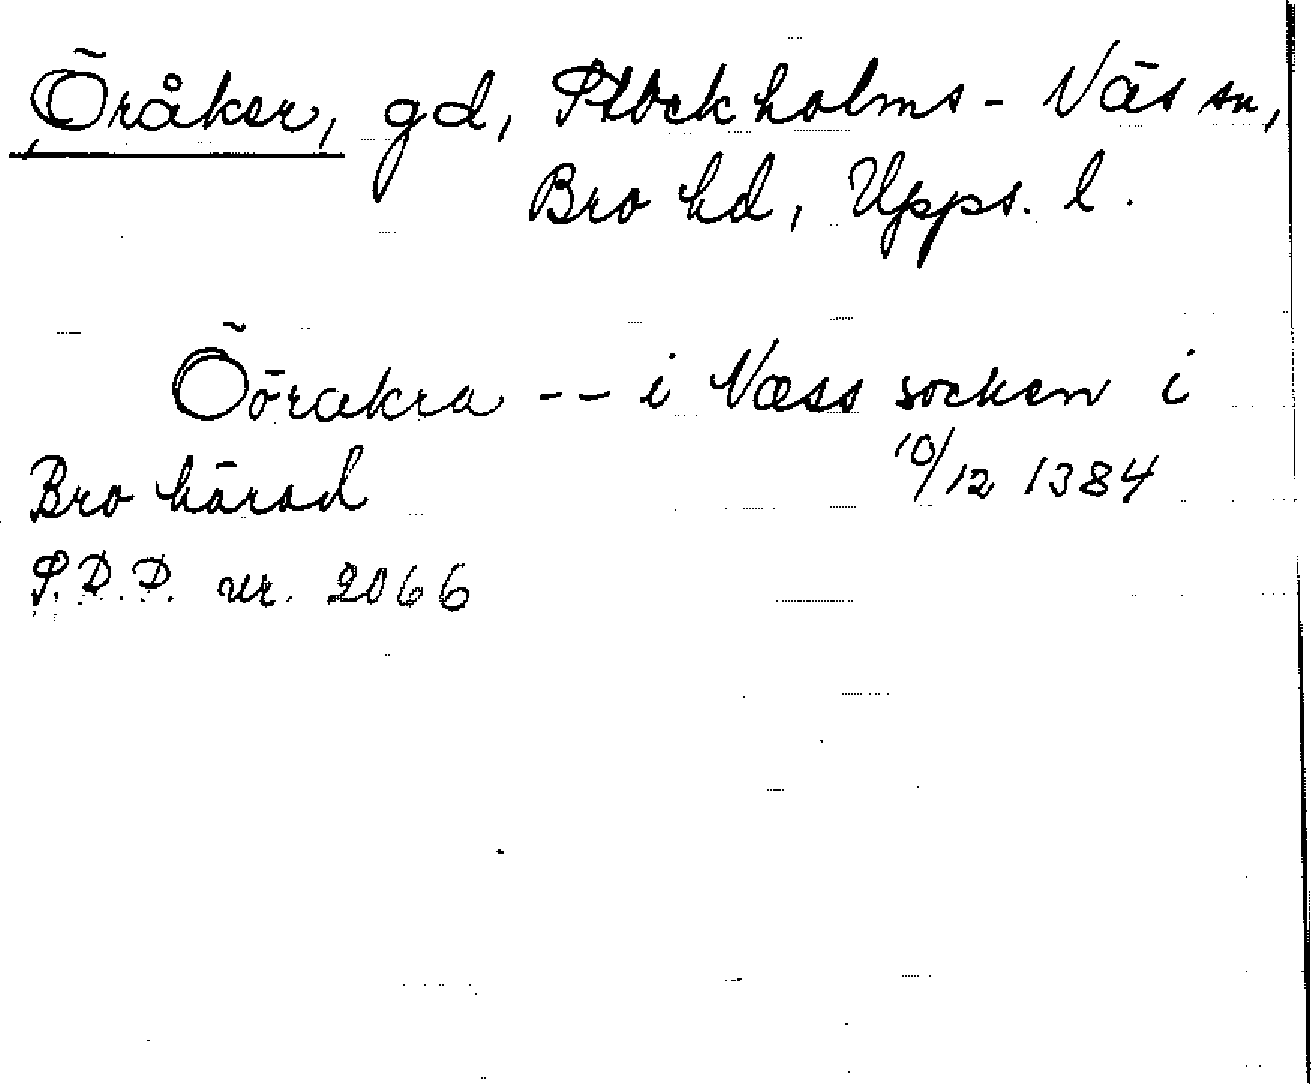 Öråker, gd, Stockholms-Näs sn,
Bro hd, Upps. l.
Öörakra -- i Næss socken i
Bro härad 10/12 1384
S.D.D. nr. 2066